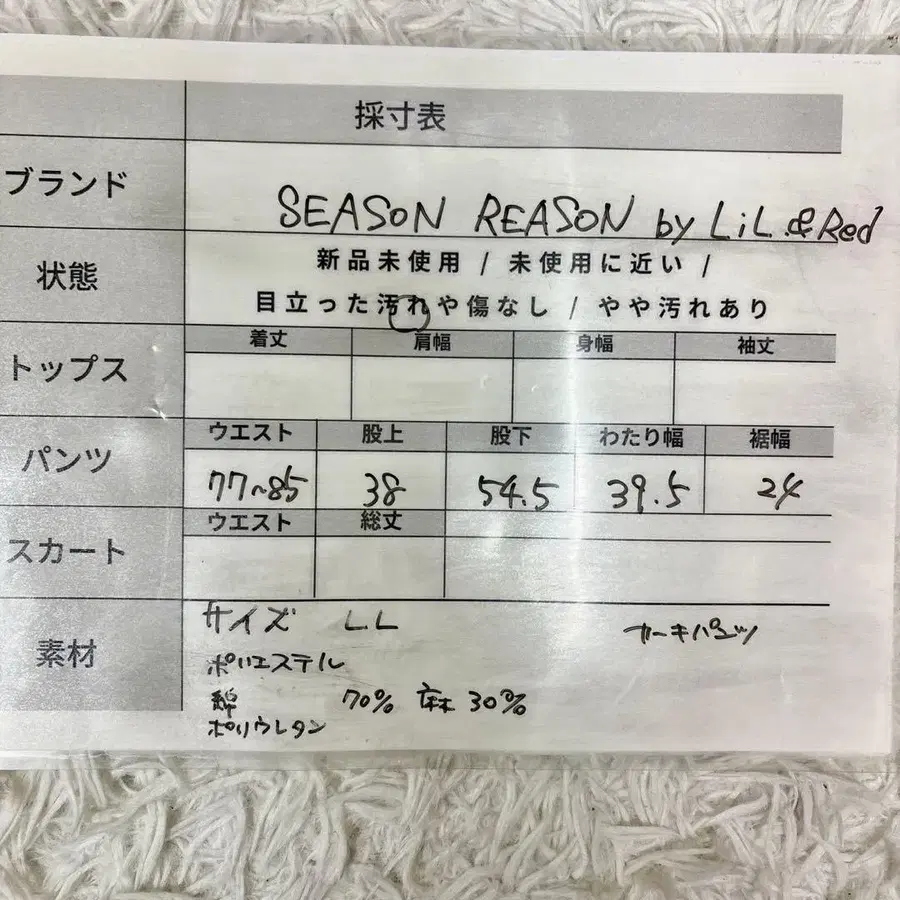 採寸表
ブランド SEASON REASON by LiL.&Red
状態 新品未使用 / 未使用に近い /
目立った汚れや傷なし / やや汚れあり
トップス 着丈 肩幅 身幅 袖丈
パンツ ウエスト 股上 股下 わたり幅 裾幅
77~85 38 54.5 39.5 24
スカート ウエスト 総丈
素材 サイズ LL
カーキパンツ
ポリエステル
綿 70% 麻 30%
ポリウレタン